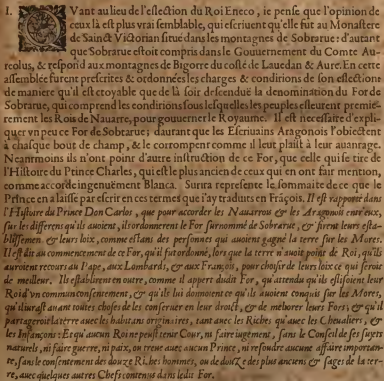 I. QVant au lieu de l'eslection du Roi Eneco, ie pense que l'opinion de
ceux là est plus vrai semblable, qui escriuent qu'elle fut au Monastere
de Sainct Victorian situé dans les montagnes de Sobrarue: d'autant
que Sobrarue estoit compris dans le Gouuernement du Comte Au-
reolus, & respõd aux montagnes de Bigorre du costé de Lauedan & Aure. En cette
assemblée furent prescrites & ordonnées les charges & conditions de son eslection
de maniere qu'il est croyable que de là soit descenduë la denomination du For de
Sobrarue, qui comprend les conditions sous lesquelles les peuples esleurent premie-
rement les Rois de Nauarre, pour gouuerner le Royaume. Il est necessaire d'expli-
quer vn peu ce For de Sobrarue; dautant que les Escriuains Aragonois l'obiectent
à chasque bout de champ, & le corrompent comme il leur plaist à leur auantage.
Neanmoins ils n'ont point d'autre instruction de ce For, que celle qui se tire de
l'Histoire du Prince Charles, qui est le plus ancien de ceux qui en ont fait mention,
comme accorde ingenuëment Blanca. Surita represente le sommaire de ce que le
Prince en a laissé par escrit en ces termes que i'ay traduits en Frãçois. Il est rapporté dans
l'Histoire du Prince Don Carlos, que pour accorder les Nauarrois & les Aragonois entr'eux,
sur les differens qu'ils auoient, il ordonnerent le For surnommé de Sobrarue, & firent leurs esta-
blissemen & leurs loix, comme estans des personnes qui auoient gagné la terre sur les Mores.
Il est dit au commencement de ce For, qu'il fut ordonné, lors que la terre n'auoit point de Roi, qu'ils
auroient recours au Pape, aux Lombards, & aux François, pour choisir de leurs loix ce qui seroit
de meilleur. Ils establirent en outre, comme il appert dudit For, qu'attendu qu'ils eslisoient leur
Roi d'vn commun consentement, & qu'ils lui donnoient ce qu'ils auoient conquis sur les Mores,
qu'il iurast auant toutes choses de les conseruer en leur droict, & de meliorer leurs Fors; & qu'il
partageroit la terre auec les habitans originaires, tant auec les Riches qu'auec les Cheualiers, &
les Infançons: Et qu'aucun Roi ne peust tenir Cour, ni faire iugement, sans le Conseil de ses suiets
naturels, ni faire guerre, ni paix, ou treue auec aucun Prince, ni resoudre aucune affaire importan-
te, sans le consentement des douze Riches hommes, ou de douZe des plus anciens & sages de la ter-
re, auec quelques autres Chefs contenus dans ledit For.